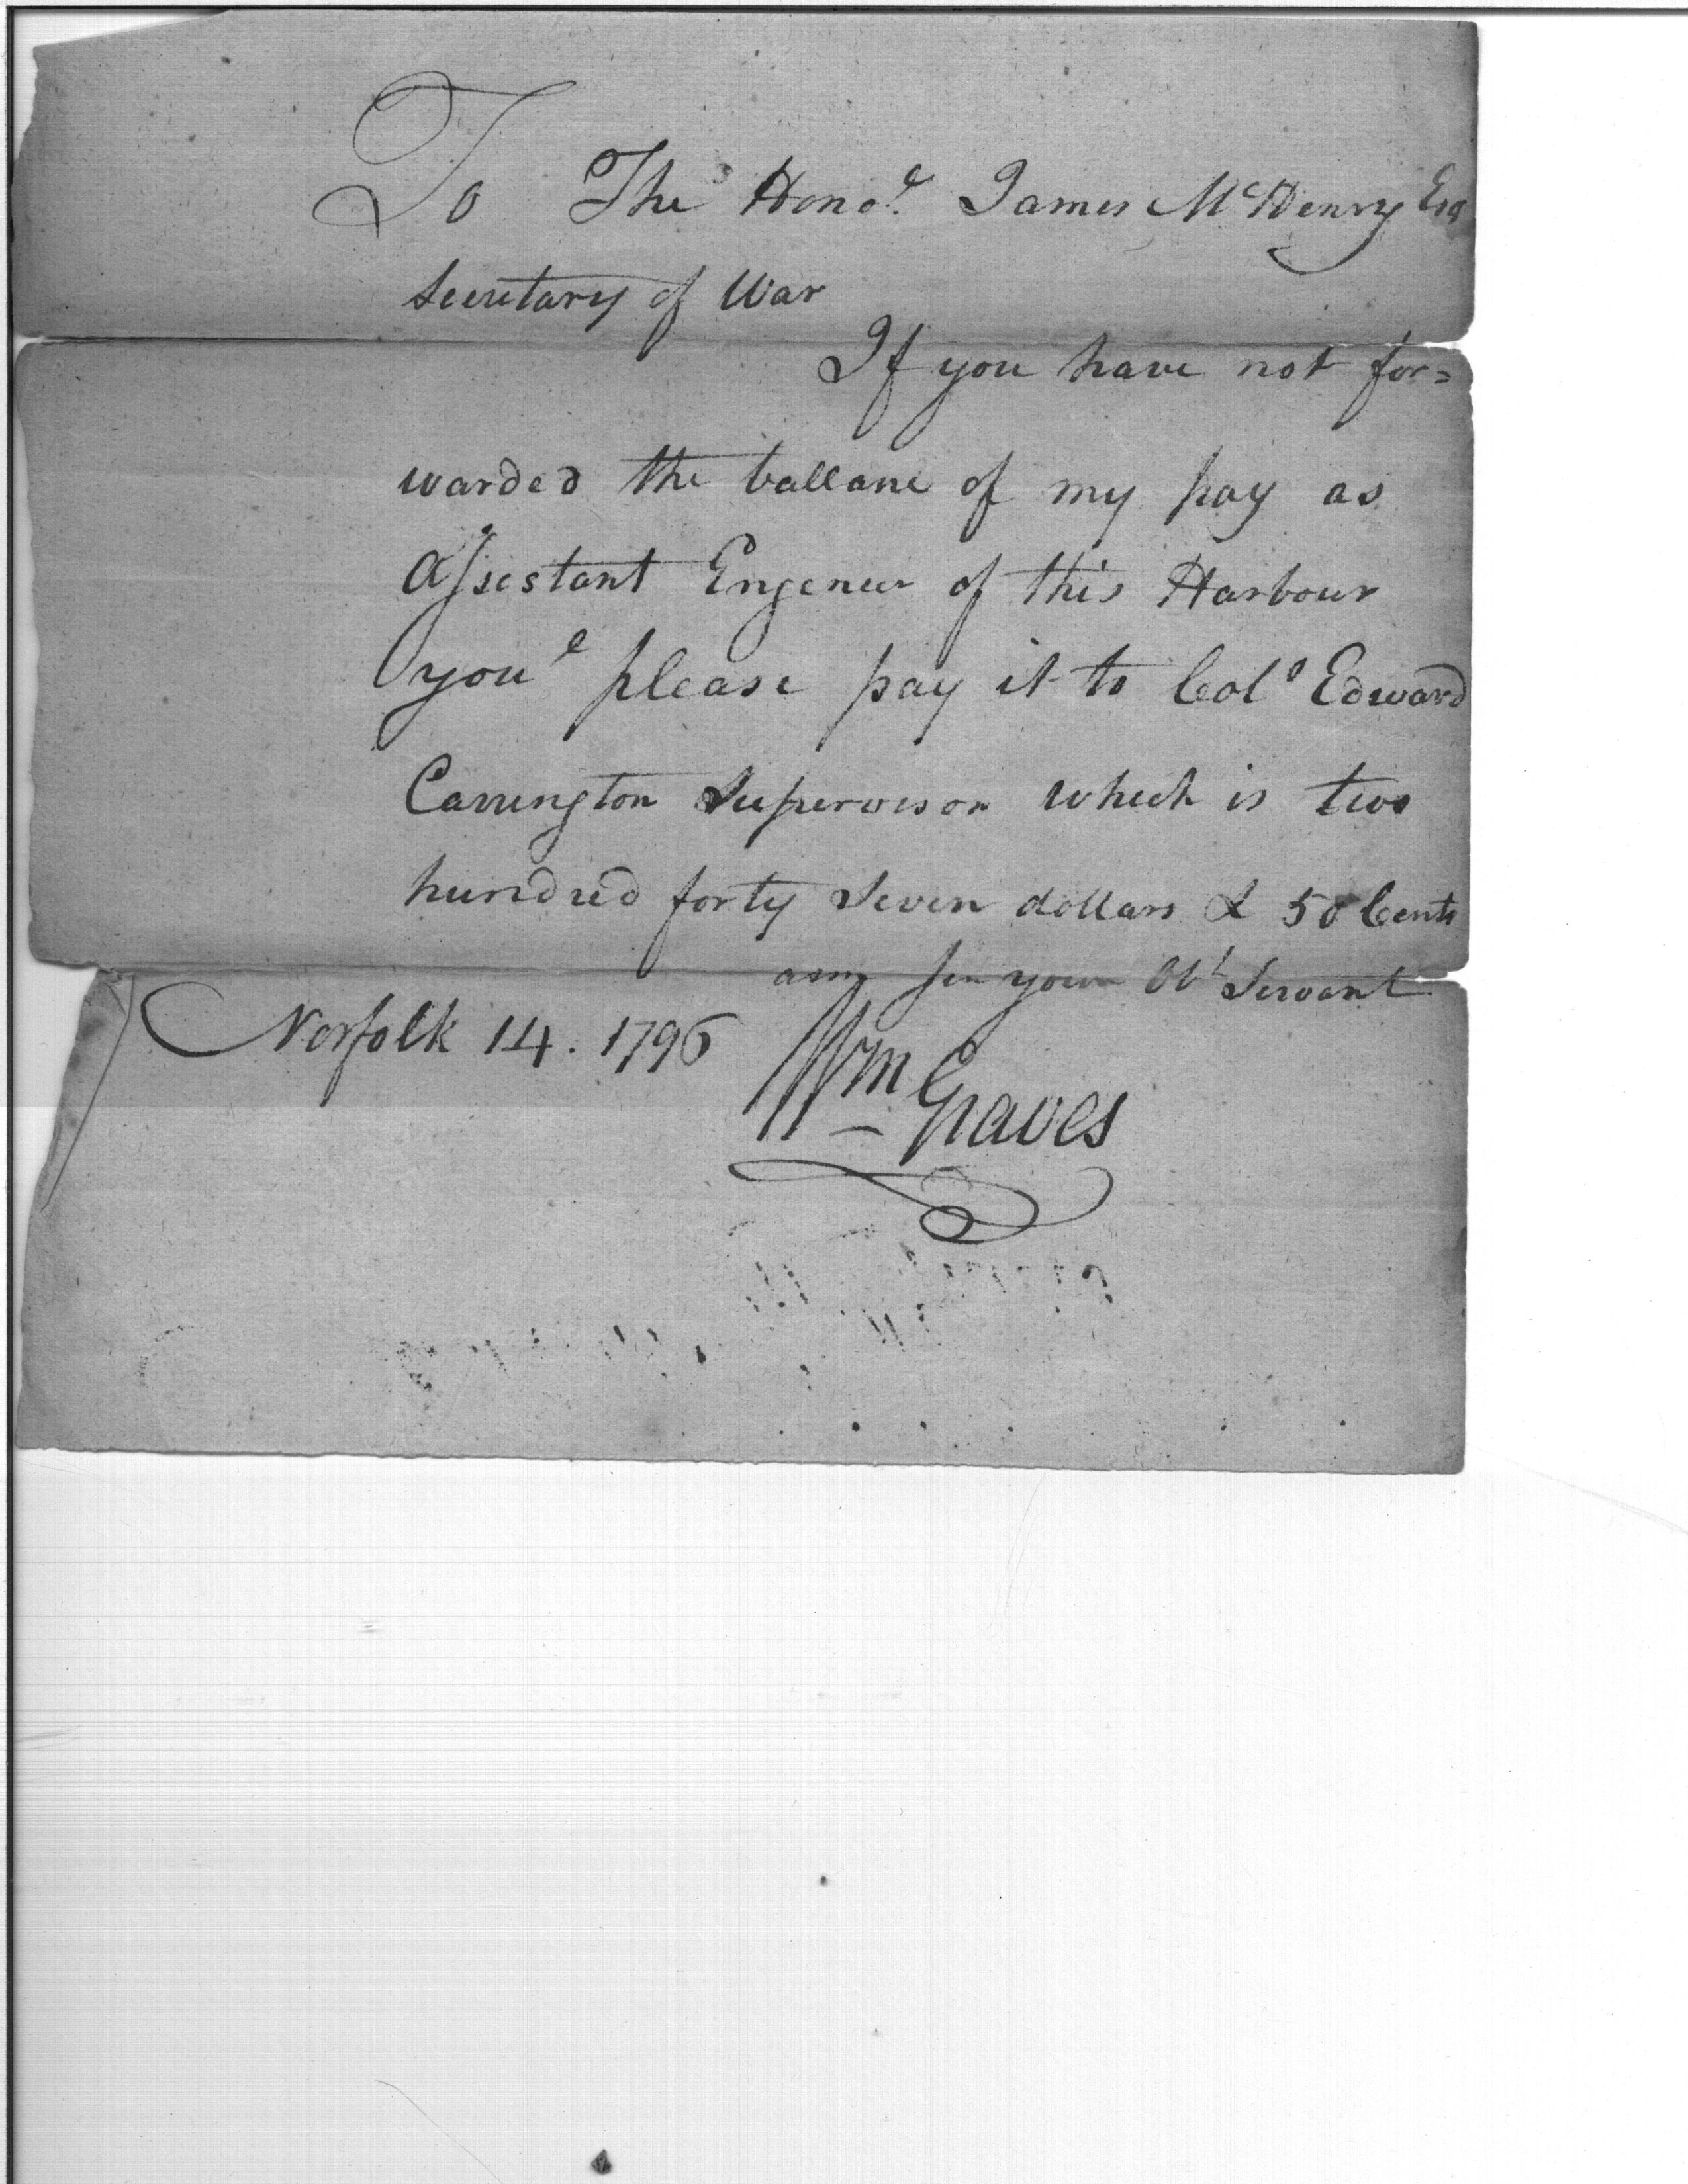 To The Hono.e James McHenry Esq
Secretary of War
If you have not for=
warded the ballane of my pay as
Assistant Engeneer of this Harbour
youe please pay it to Colo Edward
Carrington Supervisor which is two
hundred forty Seven dollars & 50 Cents
am Sir your Obt Servant
Norfolk 14. 1796
Wm Graves